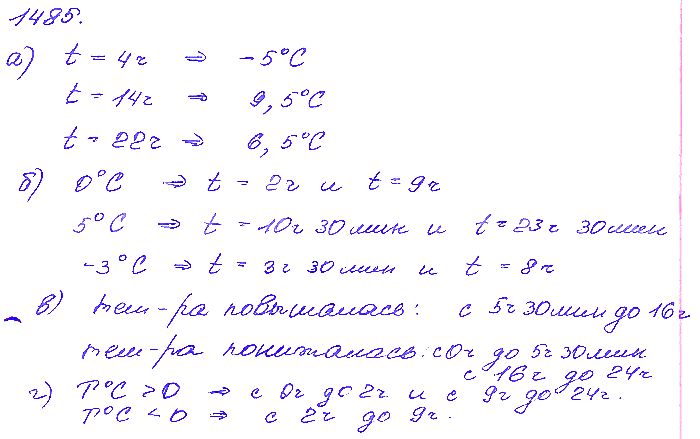 1485.
а) t = 4ч ⇒ -5°C
t = 14ч ⇒ 9,5°C
t = 22ч ⇒ 6,5°C
б) 0°C ⇒ t = 2ч и t = 9ч
5°C ⇒ t = 10ч 30мин и t = 23ч 30мин
-3°C ⇒ t = 3ч 30мин и t = 8ч
в) тем-ра повышалась: с 5ч 30мин до 16ч
тем-ра понижалась: с 0ч до 5ч 30мин
с 16ч до 24ч
г) T°C > 0 ⇒ с 0ч до 2ч и с 9ч до 24ч.
T°C < 0 ⇒ с 2ч до 9ч.